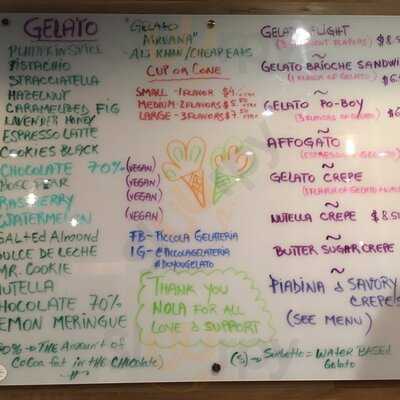 GELATO
PUMPKIN SPICE
PISTACHIO
STRACCIATELLA
HAZELNUT
CARAMELIZED FIG
LAVENDER HONEY
ESPRESSO LATTE
COOKIES BLACK
CHOCOLATE 70% (VEGAN)
ROSE PEAR (VEGAN)
RASPBERRY (VEGAN)
WATERMELON (VEGAN)
SALTED ALMOND
DULCE DE LECHE
MR. COOKIE
NUTELLA
CHOCOLATE 70%
LEMON MERINGUE
70% → THE AMOUNT OF
COCOA FAT IN THE CHOCOLATE)
"GELATO
NIRVANA"
ALI KHAN / CHEAP EATS
CUP OR CONE
SMALL - 1 FLAVOR $4.
MEDIUM - 2 FLAVORS $5.50
LARGE - 3 FLAVORS $7.50
FB - PICCOLA GELATERIA
IG - @PICCOLAGELATERIA
#DOYOUGELATO
THANK YOU
NOLA FOR ALL
LOVE & SUPPORT
GELATO FLIGHT
(3 DIFFERENT FLAVORS) $8.5
~
GELATO BRIOCHE SANDWI
(1 FLAVOR OF GELATO) $6
~
GELATO PO-BOY
(3 FLAVORS OF GELATO) $9
~
AFFOGATO
(ESPRESSO & GELATO)
~
GELATO CREPE
~
NUTELLA CREPE $8.50
~
BUTTER SUGAR CREPE
~
PIADINA & SAVORY
CREPES
(SEE MENU)
(S) → SORBETTO = WATER BASED
GELATO